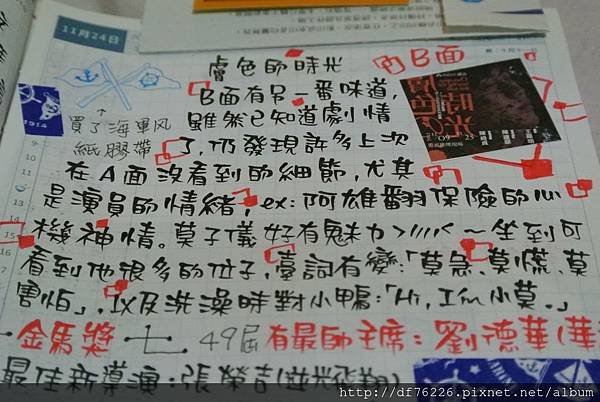 11月24日
膚色的時光 的B面
B面有另一番味道,
雖然已知道劇情
買了海軍风
紙膠帶
了,仍發現許多上次
在A面沒看到的細節,尤其
是演員的情緒,ex:阿雄翻保險的心
機神情。莫子儀好有魅力>/////<~坐到可
看到他很多的位子,臺詞有變:「莫急、莫慌、莫
害怕」,以及洗澡時對小鴨:「Hi, I'm 小莫。」
金馬獎 49屆 有最帥主席:劉德華(華
最佳新導演:張榮吉(逆光飛翔)
1914
09
25
http://df76226.pixnet.net/album